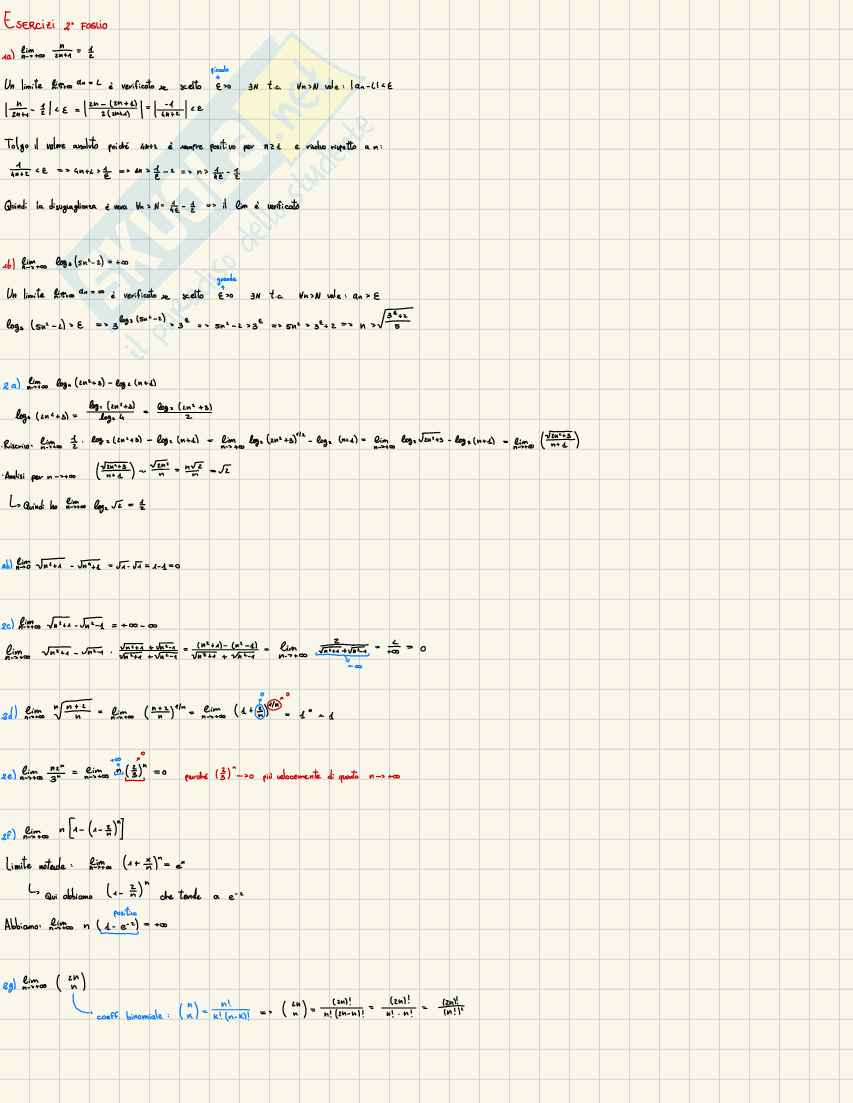 ESERCIZI 2° FOGLIO
1a) lim n->+∞ n/(2n+1) = 1/2
piccolo
Un limite lim n->+∞ an = L è verificato se scelto ε>0 ∃N t.c. ∀n>N vale: |an-L|<ε
|n/(2n+1) - 1/2| < ε = |(2n-(2n+1))/(2(2n+1))| = |-1/(4n+2)| < ε
Tolgo il valore assoluto poiché 4n+2 è sempre positivo per n≥1 e risolvo rispetto a n:
1/(4n+2) < ε => 4n+2 > 1/ε => 4n > 1/ε - 2 => n > 1/4ε - 1/2
Quindi la disuguaglianza è vera ∀n>N = 1/4ε - 1/2 => il lim è verificato
1b) lim n->+∞ log₃(5n²-2) = +∞
grande
Un limite lim n->+∞ an = ∞ è verificato se scelto ε>0 ∃N t.c. ∀n>N vale: an > ε
log₃(5n²-2) > ε => 3^log₃(5n²-2) > 3^ε => 5n²-2 > 3^ε => 5n² > 3^ε+2 => n > √((3^ε+2)/5)
2a) lim n->+∞ log₄(2n²+3) - log₂(n+1)
log₄(2n²+3) = log₂(2n²+3)/log₂4 = log₂(2n²+3)/2
·Riscrivo: lim n->+∞ 1/2 · log₂(2n²+3) - log₂(n+1) = lim n->+∞ log₂(2n²+3)^1/2 - log₂(n+1) = lim n->+∞ log₂√(2n²+3) - log₂(n+1) = lim n->+∞ (√(2n²+3)/(n+1))
·Analisi per n->+∞ (√(2n²+3)/(n+1)) ~ √(2n²)/n = n√2/n = √2
↳ Quindi ho lim n->+∞ log₂√2 = 1/2
2b) lim n->0 √(n²+1) - √(n⁴+1) = √1 - √1 = 1-1 = 0
2c) lim n->+∞ √(n²+1) - √(n²-1) = +∞ - ∞
lim n->+∞ √(n²+1) - √(n²-1) · (√(n²+1) + √(n²-1))/(√(n²+1) + √(n²-1)) = ((n²+1)-(n²-1))/(√(n²+1) + √(n²-1)) = lim n->+∞ 2/(√(n²+1) + √(n²-1)) = 2/+∞ = 0
->∞
2d) lim n->+∞ ⁿ√((n+2)/n) = lim n->+∞ ((n+2)/n)^1/n = lim n->+∞ (1+2/n)^1/n = 1⁰ = 1
0 0
2e) lim n->+∞ n2ⁿ/3ⁿ = lim n->+∞ n(2/3)ⁿ = 0 perché (2/3)ⁿ->0 più velocemente di quanto n->+∞
+∞ 0
2f) lim n->+∞ n[1-(1-2/n)ⁿ]
Limite notevole: lim n->+∞ (1+x/n)ⁿ = eˣ
↳ Qui abbiamo (1-2/n)ⁿ che tende a e⁻²
positivo
Abbiamo: lim n->+∞ n(1-e⁻²) = +∞
2g) lim n->+∞ (2n n)
coeff. binomiale: (n k) = n!/(k!(n-k)!) => (2n n) = (2n)!/(n!(2n-n)!) = (2n)!/(n!·n!) = (2n)!/(n!)²
SKUOLA.net
il paradiso dello studente